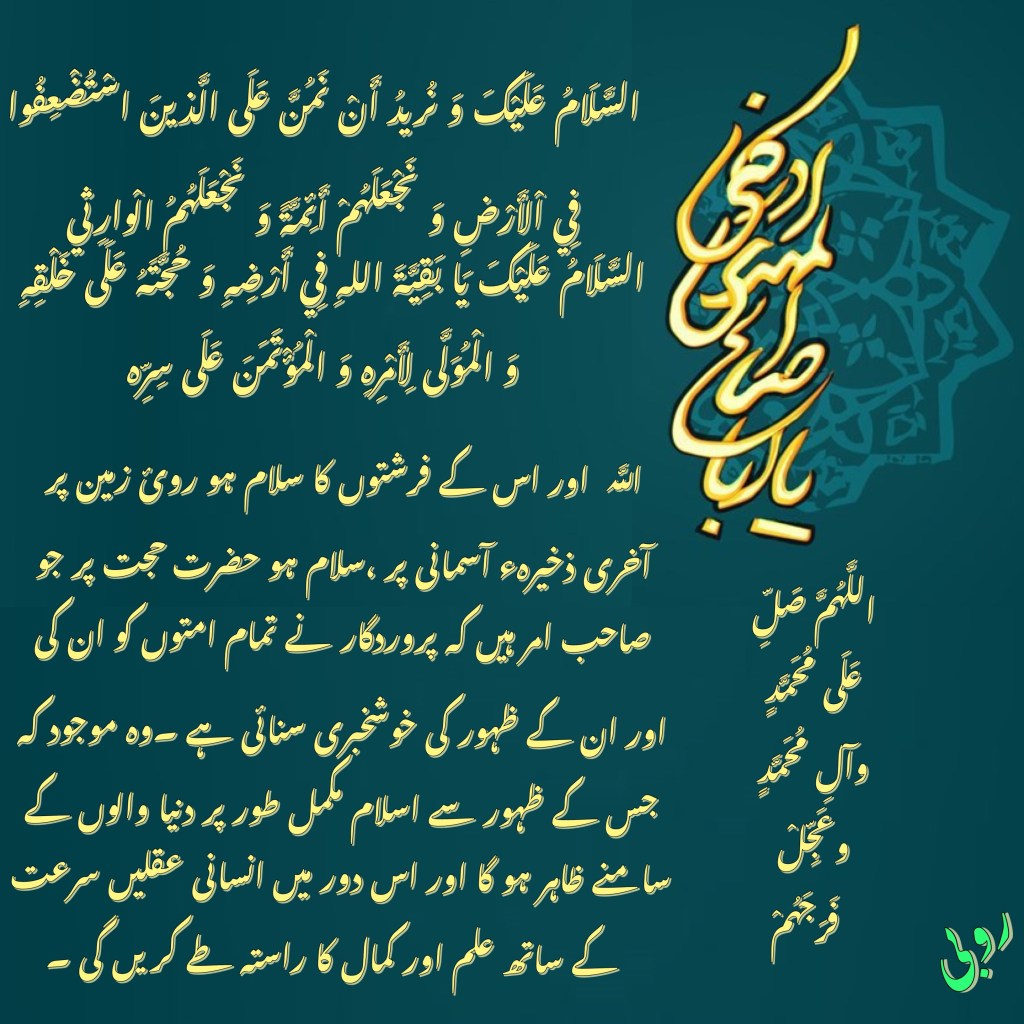 السَّلَامُ عَلَيْكَ وَ نُرِيدُ أَنْ نَمُنَّ عَلَى الَّذِينَ اسْتُضْعِفُوا
فِي الْأَرْضِ وَ نَجْعَلَهُمْ أَئِمَّةً وَ نَجْعَلَهُمُ الْوارِثِي
السَّلَامُ عَلَيْكَ يَا بَقِيَّةَ اللهِ فِي أَرْضِهِ وَ حُجَّتَهُ عَلَى خَلْقِهِ
وَ الْمُوَلَّى لِأَمْرِهِ وَ الْمُؤْتَمَنَ عَلَى سِرِّه
اللہ اور اس کے فرشتوں کا سلام ہو روئ زمین پر
آخری ذخیرہء آسمانی پر ،سلام ہو حضرت حجت پر جو
صاحب امر ہیں کہ پروردگار نے تمام امتوں کو ان کی
اور ان کے ظہور کی خوشخبری سنائی ہے ۔وہ موجود کہ
جس کے ظہور سے اسلام مکمل طور پر دنیا والوں کے
سامنے ظاہر ہو گا اور اس دور میں انسانی عقلیں سرعت
کے ساتھ علم اور کمال کا راستہ طے کریں گی ۔
یا اباصالح المهدی ادرکنی
اللَّهُمَّ صَلِّ
عَلَى مُحَمَّدٍ
وآلِ مُحَمَّدٍ
وعَجِّلْ
فَرَجَهُمْ
روبی